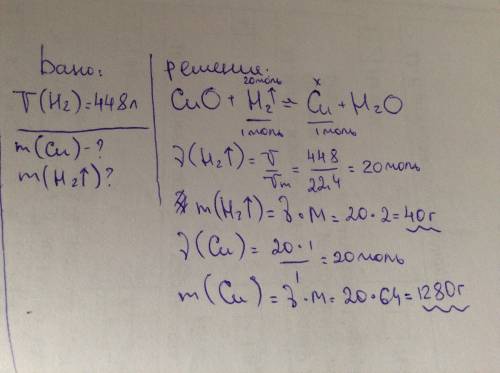 Дано:
V(H₂)=448л
m(Cu)-?
m(H₂↑)?
Решение:
20моль x
CuO + H₂↑ = Cu + H₂O
1моль 1моль
ν(H₂↑) = V/Vm = 448/22.4 = 20моль
m(H₂↑) = ν·M = 20·2 = 40г
ν(Cu) = 20·1/1 = 20моль
m(Cu) = ν·M = 20·64 = 1280г